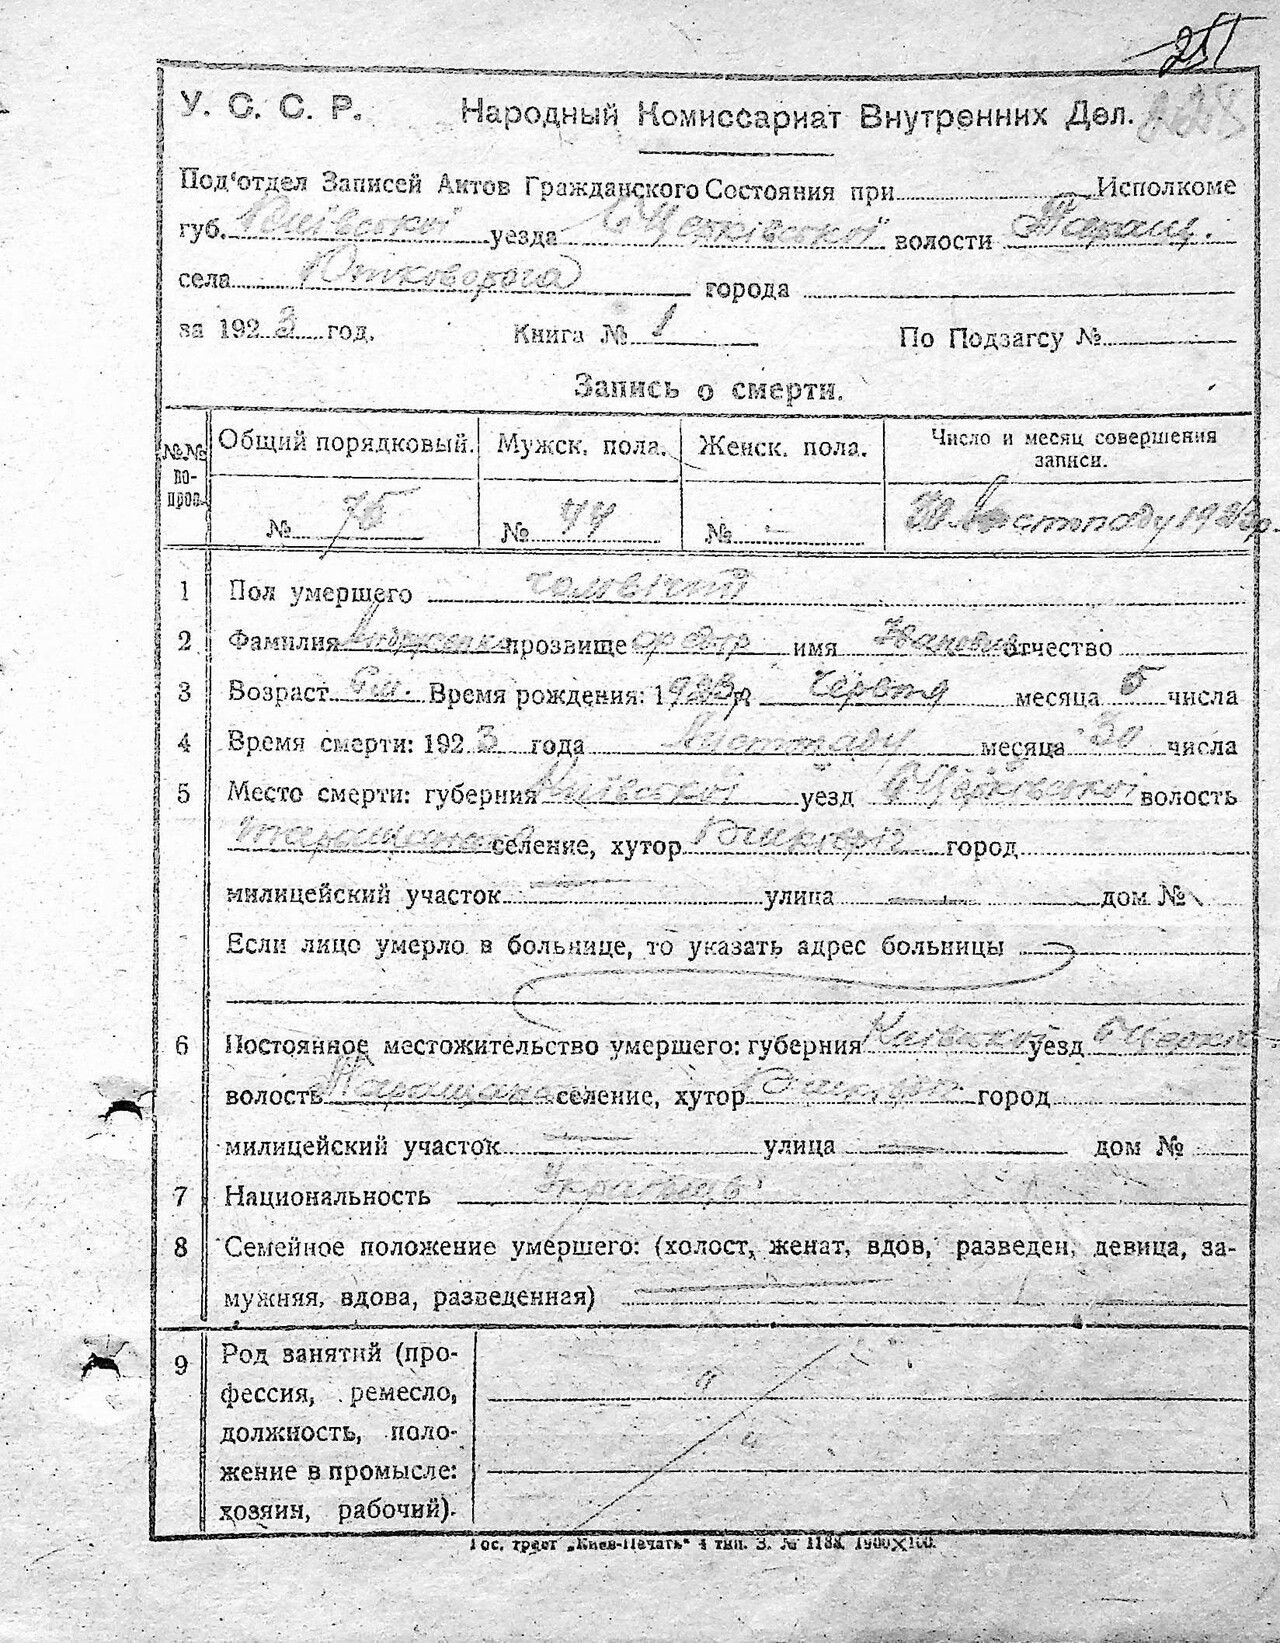 251
У. С. С. Р. Народный Комиссариат Внутренних Дел.
Под'отдел Записей Актов Гражданского Состояния при Исполкоме
губ. Київської уезда Б Церківської волости Таращ.
села города
за 1923 год. Книга № 1 По Подзагсу №
Запись о смерти.
№№ по- пров. Общий порядковый. Мужск. пола. Женск. пола. Число и месяц совершения записи.
№ № 44 № - 30 Листопаду 1923р.
1 Пол умершего чоловічий
2 Фамилия прозвище имя отчество
3 Возраст 6 м. Время рождения: 1923 г. Червня месяца 5 числа
4 Время смерти: 1923 года Листопаду месяца 30 числа
5 Место смерти: губерния Київської уезд БЦерківської волость
селение, хутор город
милицейский участок улица дом №
Если лицо умерло в больнице, то указать адрес больницы
6 Постоянное местожительство умершего: губерния Київської уезд
волость селение, хутор город
милицейский участок улица дом №
7 Национальность Українець
8 Семейное положение умершего: (холост, женат, вдов, разведен, девица, за-
мужняя, вдова, разведенная)
9 Род занятий (про-
фессия, ремесло,
должность, поло-
жение в промысле:
хозяин, рабочий).
Гос. трест „Киев-Печать" 4 тип. З. № 1188. 1900×100.